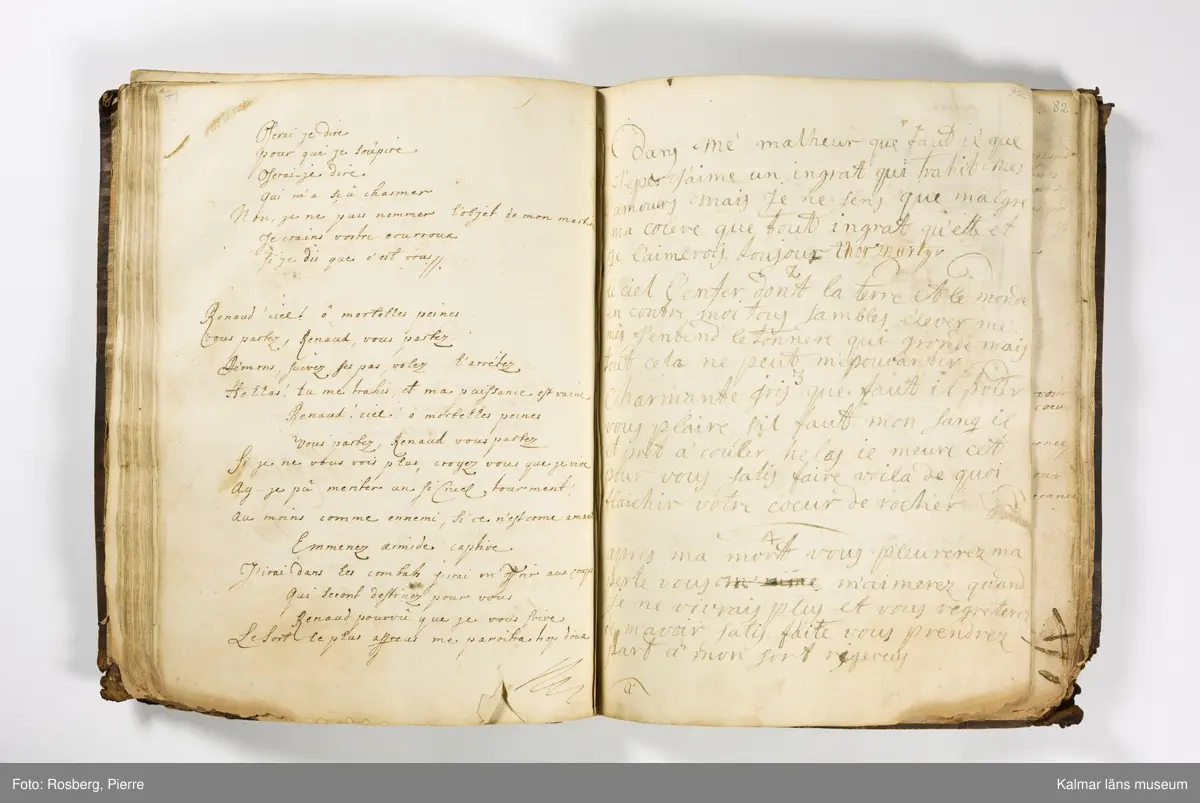 Oserai je dire
pour qui je soûpire
Oserai-je dire
qui m'a sçû charmer
Non, je ne puis nommer l'objet de mon
Je crains vostre courroux
Si je dis que c'est vous //.
Renaud! ciel! ô mortelles peines
Vous partez, Renaud, vous partez!
Démons, suivez ses pas, volez l'arrêtez
Hellas! tu me trahis, et ma puissance est vaine
Renaud! ciel! ô mortelles peines
Vous partez, Renaud vous partez
Si je ne vous vois plus, croyez vous que je vive
Ay-je pû meriter un si Cruel tourment!
Au moins comme ennemi, si ce n'est come amant
Emmenez armide captive
J'irai dans les combats j'irai m'offrir aux coups
Qui seront destinez pour vous
Renaud pourvû que je vous suive
Le Sort le plus affreux me paroitra trop doux
92
82
Dans mé malheur que faut il que
J'aime un ingrat qui trahit mes
amours mais Je ne sens que malgre
ma colere que tout ingrat qu'ell et
je l'aimerois toujour
2
le ciel l'enfer dont la terre et le monde
en contre moi tous sambles elever me
mis J'entend le tonnere qui gronde mais
tout cela ne peut m'epouvantir
3
Charmante Iris que faut il pour
vous plaire, s'il faut mon sang il
et pret à couler helas ie meure cet
pour vous satis faire voila de quoi
votre coeur de rocher
4
apres ma mort vous pleurerez ma
perte vous m'aimerez quand
Je ne vivrais plus et vous regreterez
m'avoir satis faite vous prendrez
part a mon sort rigereus
Foto: Rosberg, Pierre
Kalmar läns museum